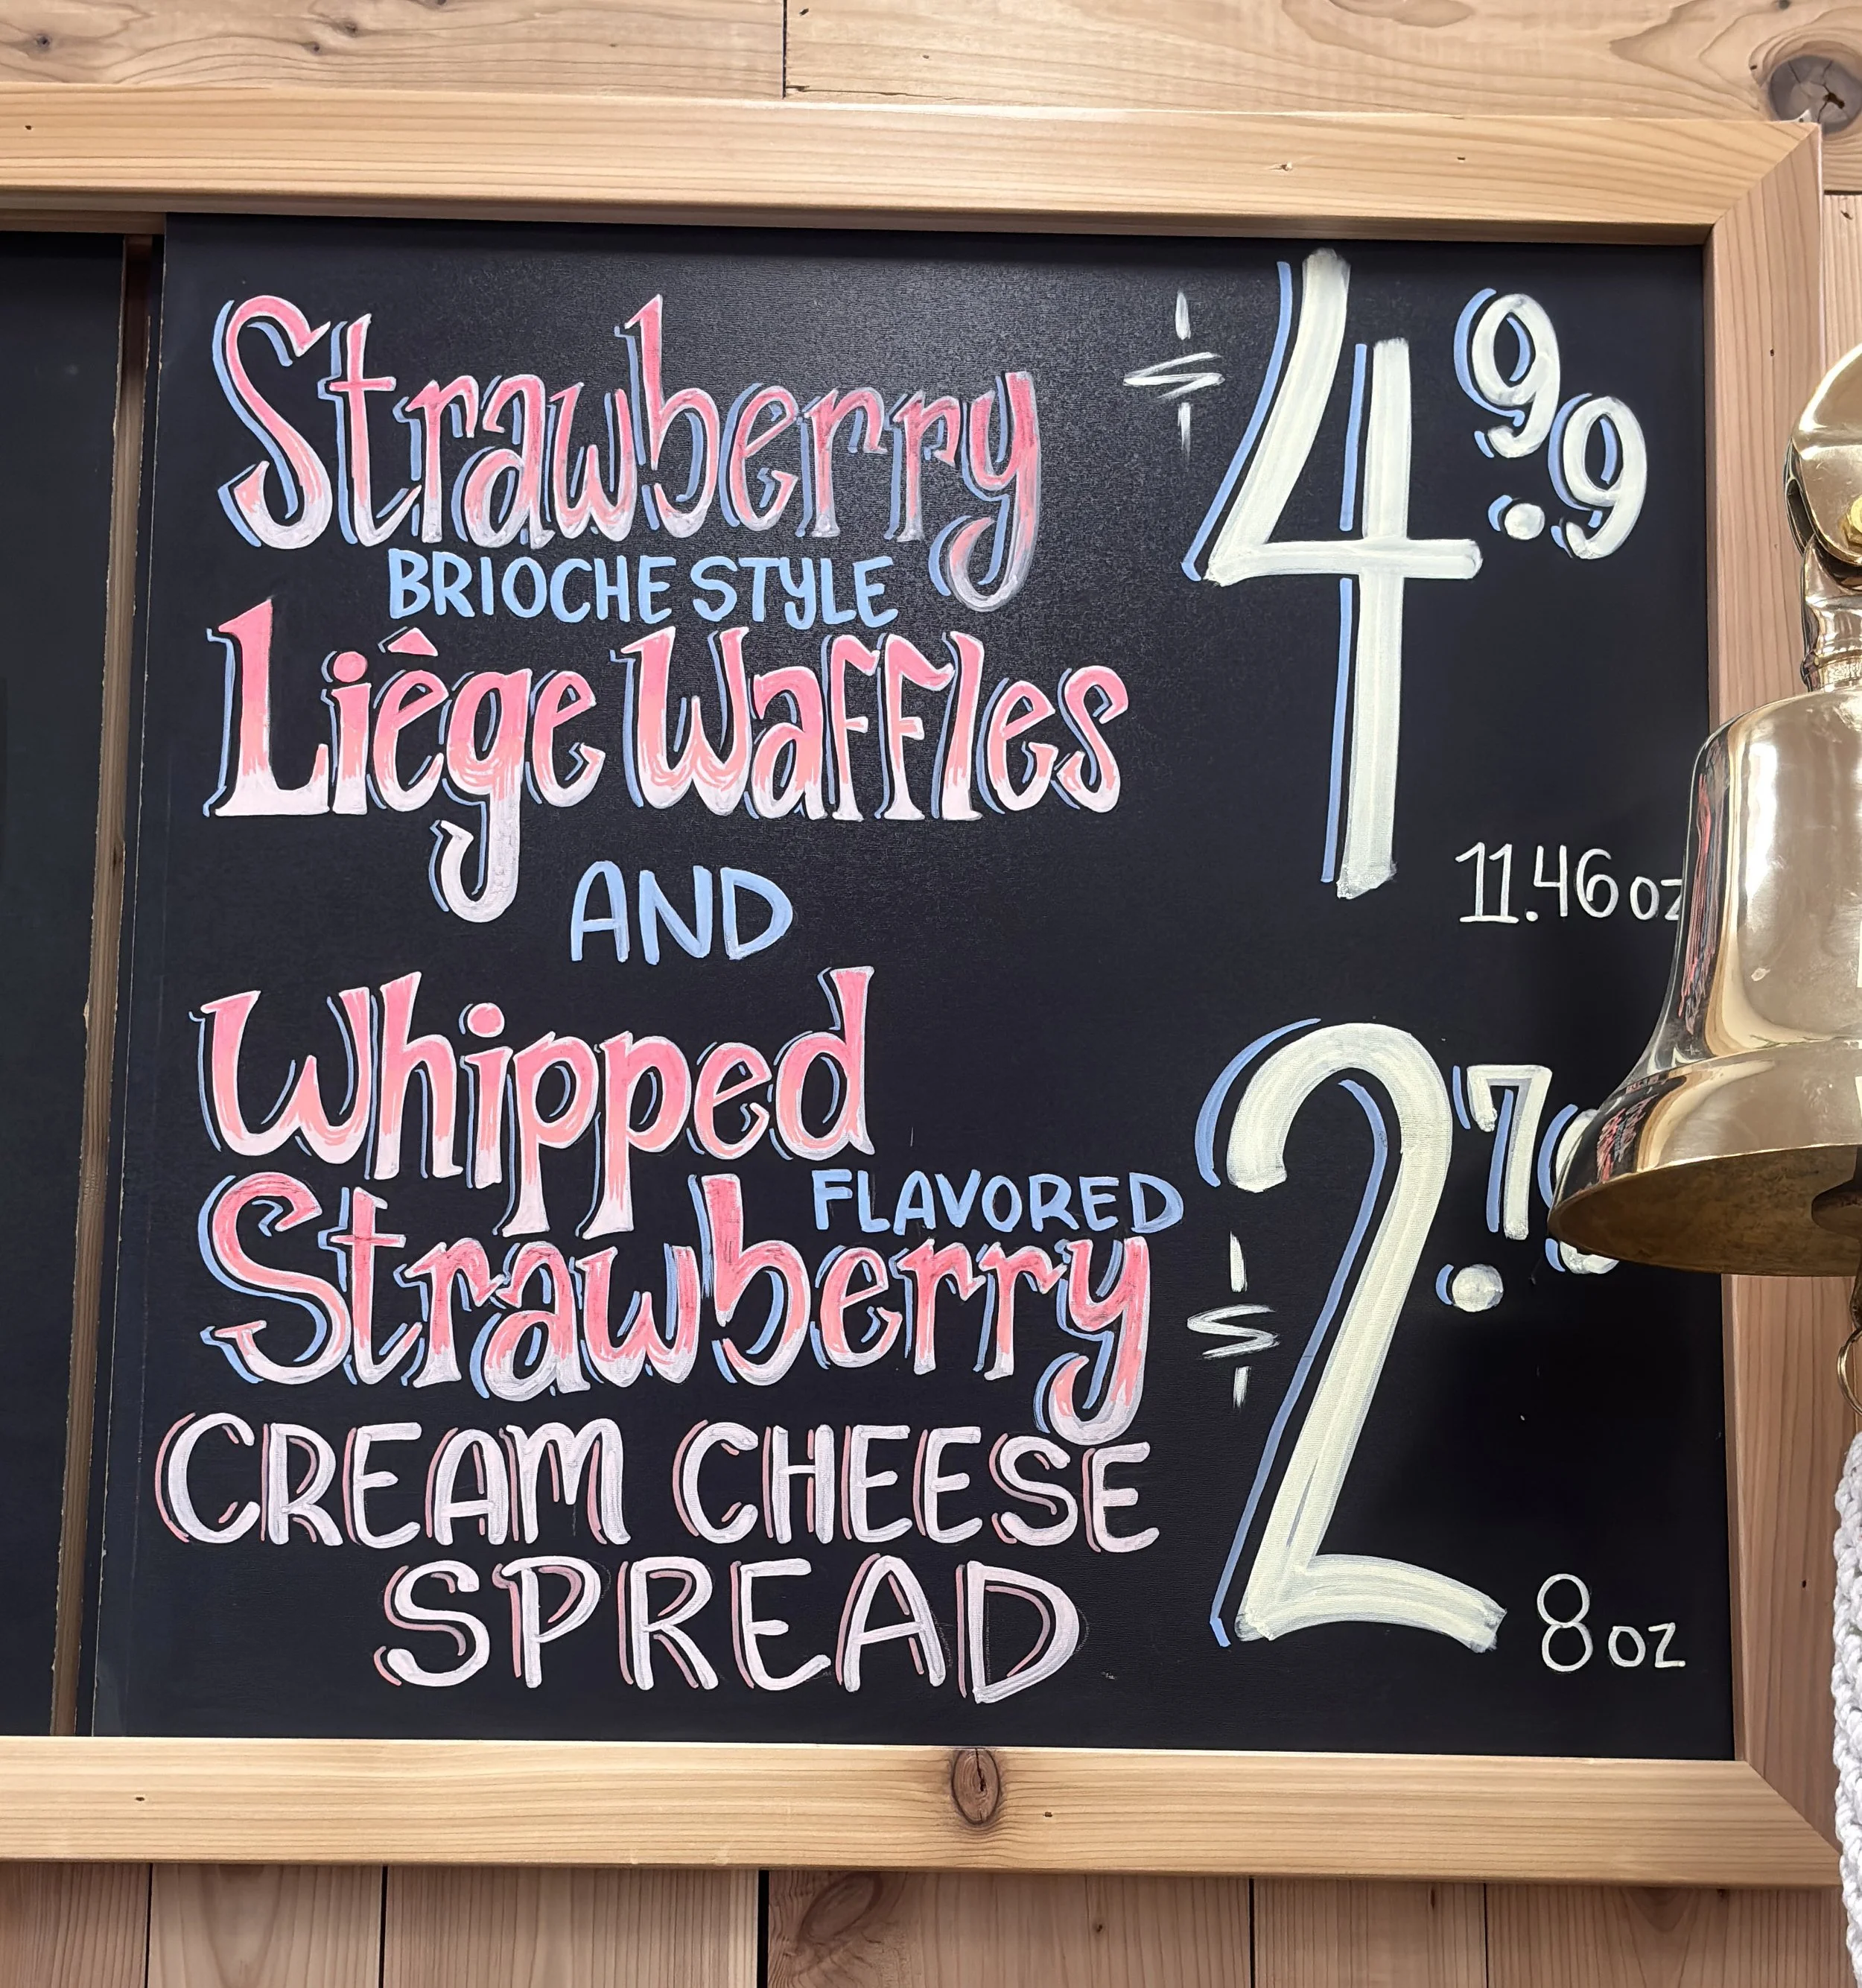 Strawberry $4.99
BRIOCHE STYLE
Liège Waffles
11.46 oz
AND
Whipped
FLAVORED
Strawberry $2.7
CREAM CHEESE
SPREAD
8 oz